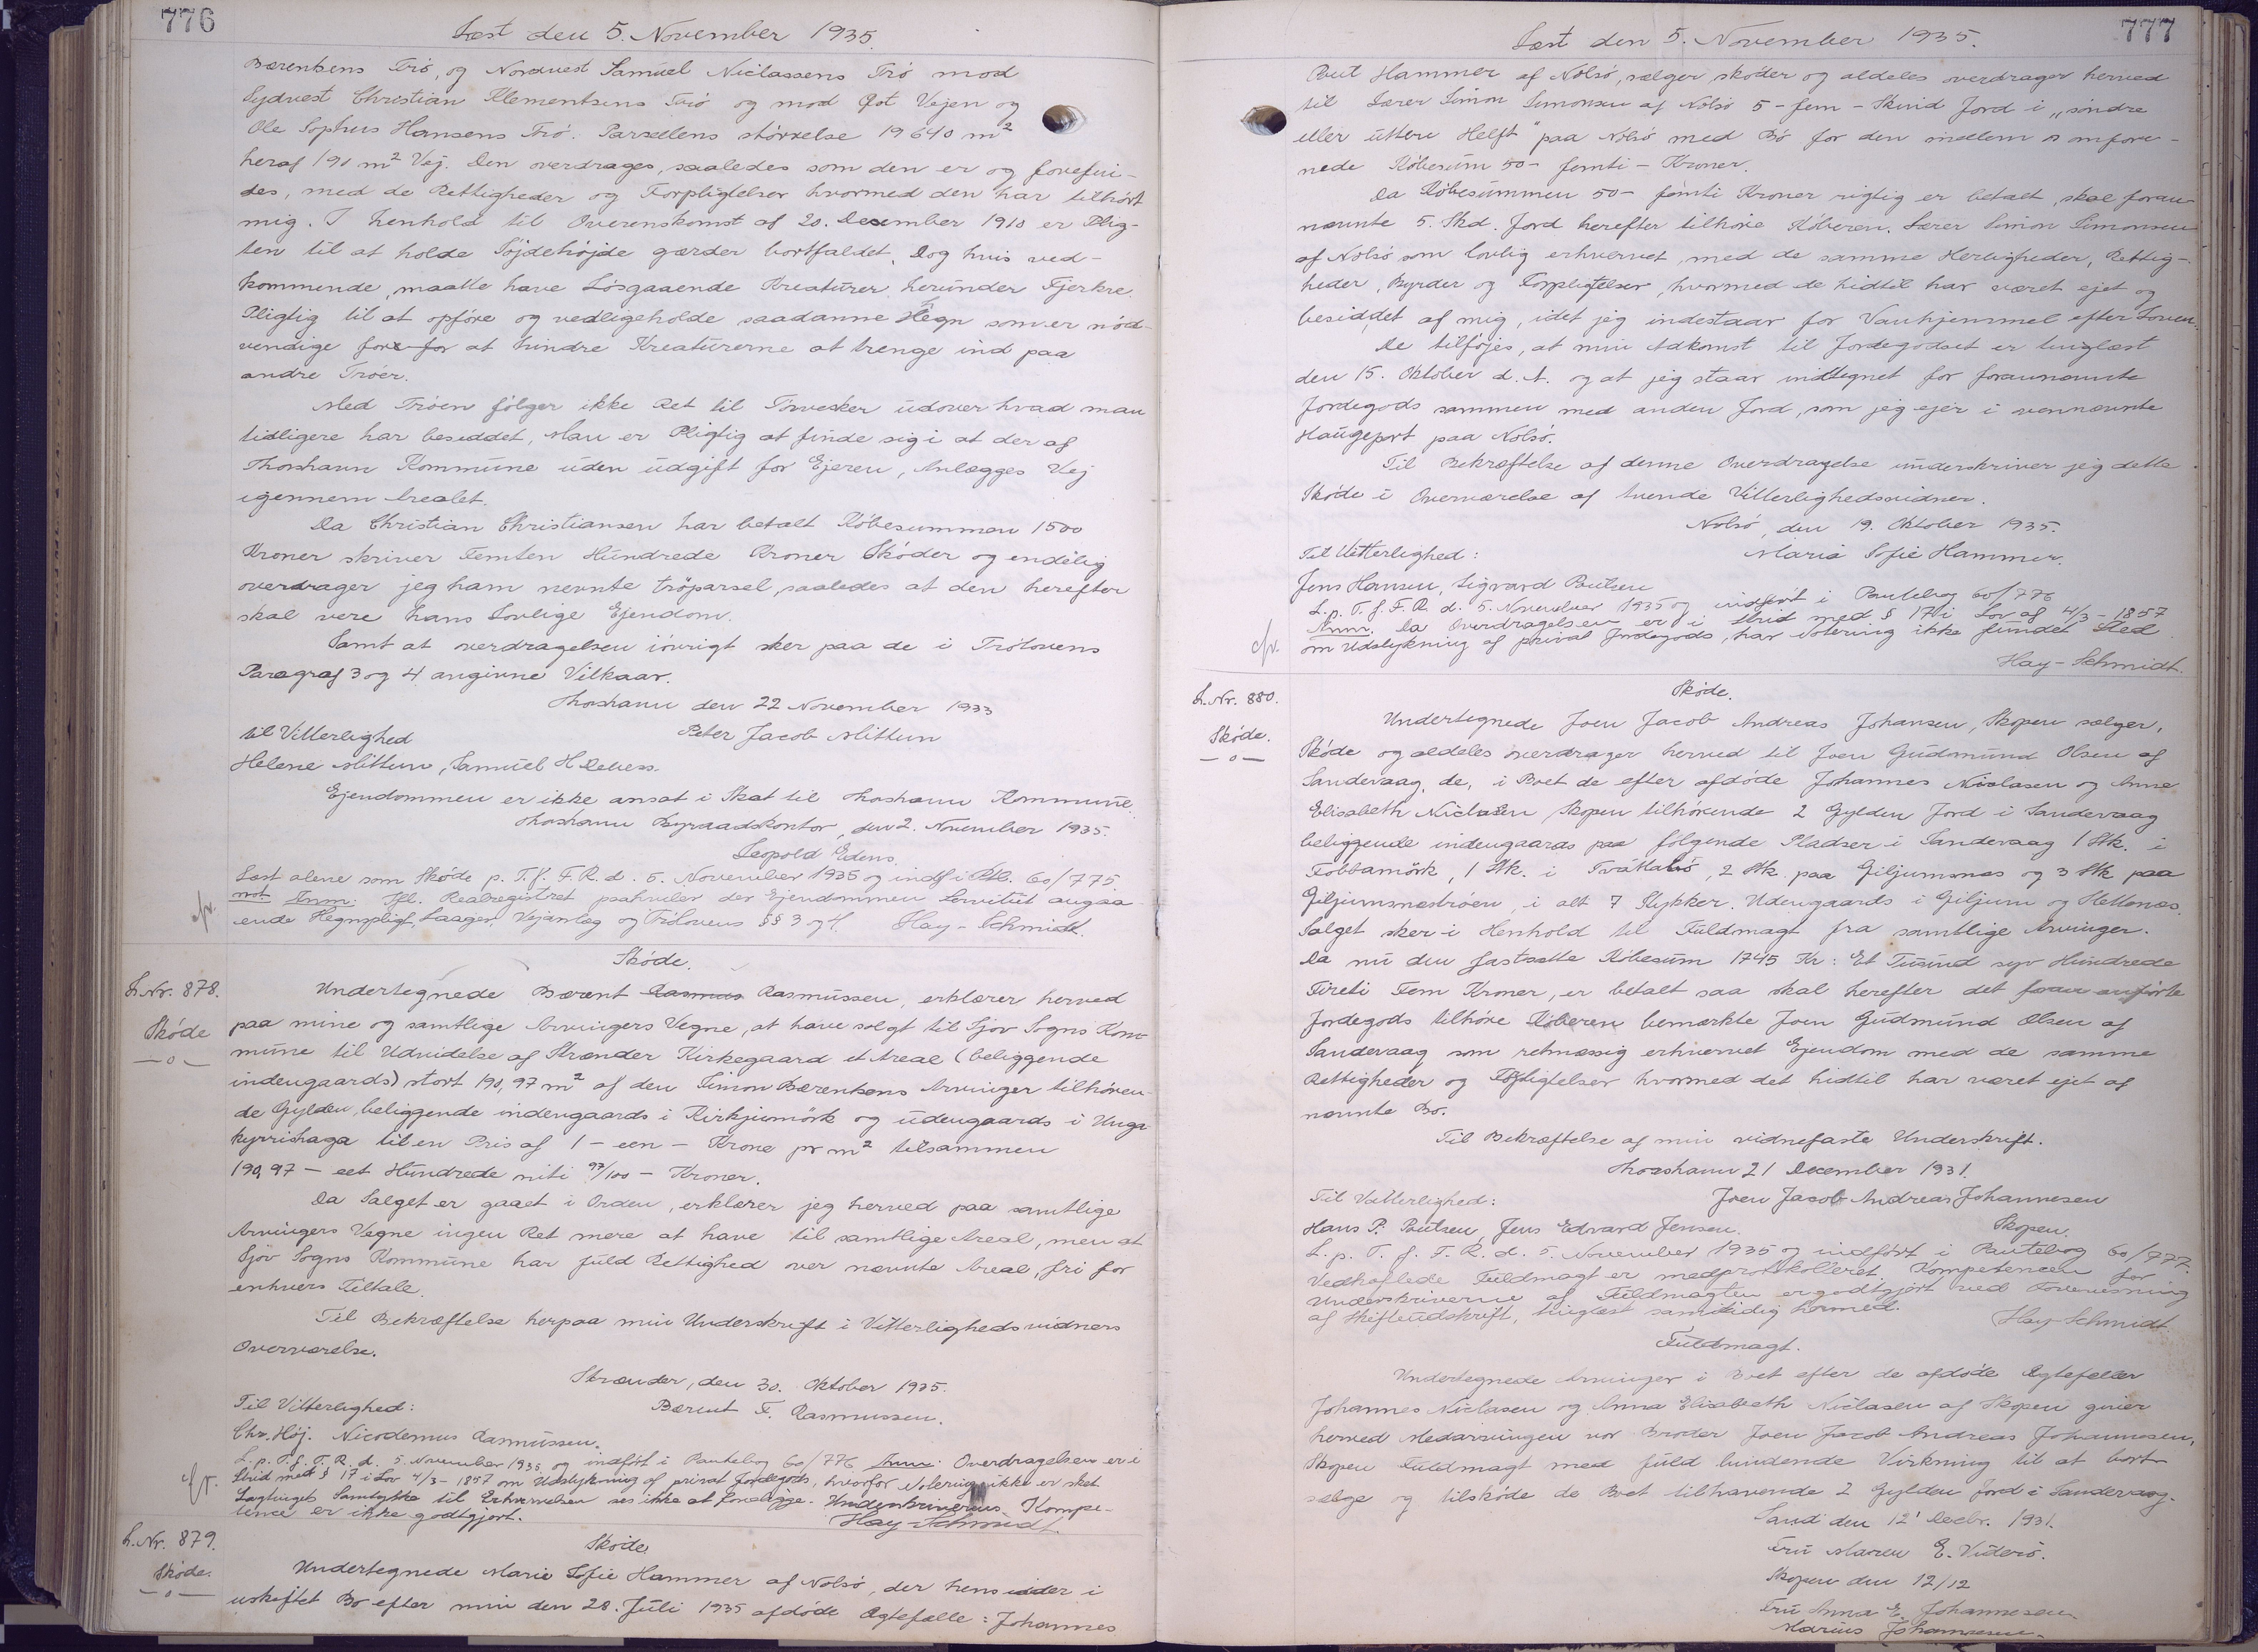 776
Læst den 5. November 1935.
Bærentsens Trö, og Nordvest Samuel Niclassens Trö mod
Sydvest Christian Klementsens Trö og mod Øst Vejen og
Ole Sophus Hansens Trö. Parsellens störrelse 19640 m²
heraf 190 m² Vej. Den overdrages, saaledes som den er og forefin-
des, med de Rettigheder og Forpligtelser hvormed den har tilhört
mig. I henhold til Overenskomst af 20. December 1910 er Plig-
ten til at holde Söjdehöjde gærder bortfaldet. Dog hvis ved-
kommende, maatte have Lösgaaende Kreaturer herunder Fjerkre.
Pligtig til at opföre og vedligeholde saadanne Hegn som er nöd-
vendige for at hindre Kreaturerne at trenge ind paa
andre Tröer.
Med Tröen fölger ikke Ret til Törvesker udover hvad man
tidligere har besiddet, Man er Pligtig at finde sig i at der af
Thorshavn Kommune uden udgift for Ejeren, Anlægges Vej
igennem Arealet.
Da Christian Christiansen har betalt Köbesummen 1500
Kroner skriver Femten Hundrede Kroner Sköder og endelig
overdrager jeg ham nevnte tröparsel, saaledes at den herefter
skal vere hans Lovlige Ejendom.
Samt at overdragelsen iövrigt sker paa de i Trölovens
Paragraf 3 og 4 angivne Vilkaar.
Thorshavn den 22 November 1933
til Vitterlighed Peter Jacob Mittun
Helene Mittun, Samuel H Debess.
Ejendommen er ikke ansat i Skat til Thorshavn Kommune
Thorshavn Byraadskontor, den 2. November 1935.
Leopold
Læst alene som Sköde p. T. f. F. R. d. 5. November 1935 og indf i Ptb. 60/775.
not. Anm: Ifl. Realregistret paahviler der Ejendommen Servitut angaa
ende Hegnspligt, Laager, Vejanlæg og Trölovens §§ 3 og 4. Hay-Schmidt.
Sköde.
L. Nr. 878.
Sköde
—o—
Undertegnede Bærent Rasmus Rasmussen, erklærer herved
paa mine og samtlige Arvingers Vegne, at have solgt til Sjov Sogns Kom-
mune til Udvidelse af Strænder Kirkegaard et Areal (beliggende
indengaards) stort 190,97 m² af den Simon Bærentsens Arvinger tilhören-
de Gylden, beliggende indengaards i Kirkjumörk og udengaards i Unga
kyrrishaga til en Pris af 1 - een - Krone pr m² tilsammen
190,97 - eet Hundrede niti 97/100 - Kroner.
Da Salget er gaaet i Orden, erklærer jeg herved paa samtlige
Arvingers Vegne ingen Ret mere at have til samtlige Areal, men at
Sjöv Sogns Kommune har fuld Rettighed over nævnte Areal, fri for
enhvers Tiltale.
Til Bekræftelse herpaa min Underskrift i Vitterligheds vidners
Overværelse.
Strænder, den 30. Oktober 1935.
Til Vitterlighed: Bærent F. Rasmussen.
Chr. Höj. Nicodemus Rasmussen.
L. p. T. f. F. R. d. 5. November 1935 og indfört i Pantebog 60/776 Anm: Overdragelsen er i
Strid med § 17 i Lov 4/3-1857 om Udstykning af privat Jordegods, hvorfor Notering ikke er sket
Lagtingets Samtykke til Erhvervelsen ses ikke at foreligge. Underskriverens Kompe-
tence er ikke godtgjort. Hay-Schmidt.
Sköde
L. Nr. 879.
Sköde.
—o—
Undertegnede Marie Sofie Hammer af Nolsö, der hensidder i
uskiftet Bo efter min den 28. Juli 1935 afdöde Ægtefælle: Johannes
777
Læst den 5. November 1935.
Poul Hammer af Nolsö, sælger sköder og aldeles overdrager herved
til Lærer Simon Simonsen af Nolsö 5 - fem - Skind Jord i „söndre
eller uttere Helft" paa Nolsö med Bö for den mellem os omfore-
nede Köbesum 50- femti - Kroner.
Da Köbesummen 50- femti Kroner rigtig er betalt, skal foran-
nævnte 5. Skd. Jord herefter tilhöre Köberen, Lærer Simon Simonsen
af Nolsö som lovlig erhvervet, med de samme Herligheder, Rettig-
heder, Byrder og Forpligtelser, hvormed de hidtil har været ejet og
besiddet af mig, idet jeg indestaar for Vanhjemmel efter Loven.
De tilföjes, at min Adkomst til Jordegodset er tinglæst
den 15. Oktober d. A. og at jeg staar indtegnet for forannævnte
Jordegods sammen med anden Jord, som jeg ejer i ovennævnte
Haugepart paa Nolsö.
Til Bekræftelse af denne Overdragelse underskriver jeg dette
Sköde i Overværelse af tvende Vitterlighedsvidner.
Nolsö, den 19. Oktober 1935.
Til Vitterlighed: Maria Sofie Hammer.
Jens Hansen, Sigvard Poulsen
L. p. T. f. F. R. d. 5. November 1935 og indfört i Pantebog 60/776
Anm. Da Overdragelsen er i Strid med § 17 i Lov af 4/3-1857
om Udstykning af privat Jordegods, har Notering ikke fundet Sted
Hay-Schmidt.
Sköde.
L. Nr. 880.
Sköde.
—o—
Undertegnede Joen Jacob Andreas Johansen, Skopen sælger,
Sköde og aldeles overdrager herved til Joen Gudmund Olsen af
Sandevaag, de, i Boet de efter afdöde Johannes Niclasen og Anne
Elisabeth Niclasen Skopen tilhörende 2 Gylden Jord i Sandevaag
beliggende indengaards paa fölgende Pladser i Sandevaag 1 Stk. i
Fobbamörk, 1 Stk. i Tváttabö, 2 Stk. paa Giljumsnes og 3 Stk paa
Giljumsneströen, i alt 7 Stykker. Udengaards i Giljum og Stettanes.
Salget sker i Henhold til Fuldmagt fra samtlige Arvinger.
Da nu den fastsatte Köbesum 1745 Kr: Et Tusind syv Hundrede
Fireti Fem Kroner, er betalt saa skal herefter det foran anförte
Jordegods tilhöre Köberen bemærkte Joen Gudmund Olsen af
Sandevaag som retmæssig erhvervet Ejendom med de samme
Rettigheder og Forpligtelser hvormed det hidtil har været ejet af
nævnte Bo.
Til Bekræftelse af min vidnefaste Underskrift.
Thorshavn 21 December 1931.
Til Vitterlighed: Joen Jacob Andreas Johannesen
Hans P. Poulsen, Jens Edvard Jensen. Skopen.
L. p. T. f. F. R. d. 5. November 1935 og indfört i Pantebog 60/777.
Vedhæftede Fuldmagt er medprotokolleret. Kompetencen for
Underskriverne af Fuldmagten er godtgjort ved Forevisning
af Skifteudskrift, tinglæst samtidig hermed. Hay-Schmidt
Fuldmagt.
Undertegnede Arvinger i Boet efter de afdöde Ægtefæller
Johannes Niclasen og Anna Elisabeth Niclasen af Skopen giver
herved Medarvingen vor Broder Joen Jacob Andreas Johannesen,
Skopen Fuldmagt med fuld bindende Virkning til at bort-
sælge og tilsköde de Boet tilhörende 2 Gylden Jord i Sandevaag.
Sand den 12' Decbr. 1931.
Fru Maren E. Viderö.
Skopen den 12/12
Fru Anna E. Johannesen
Marius Johannesen.